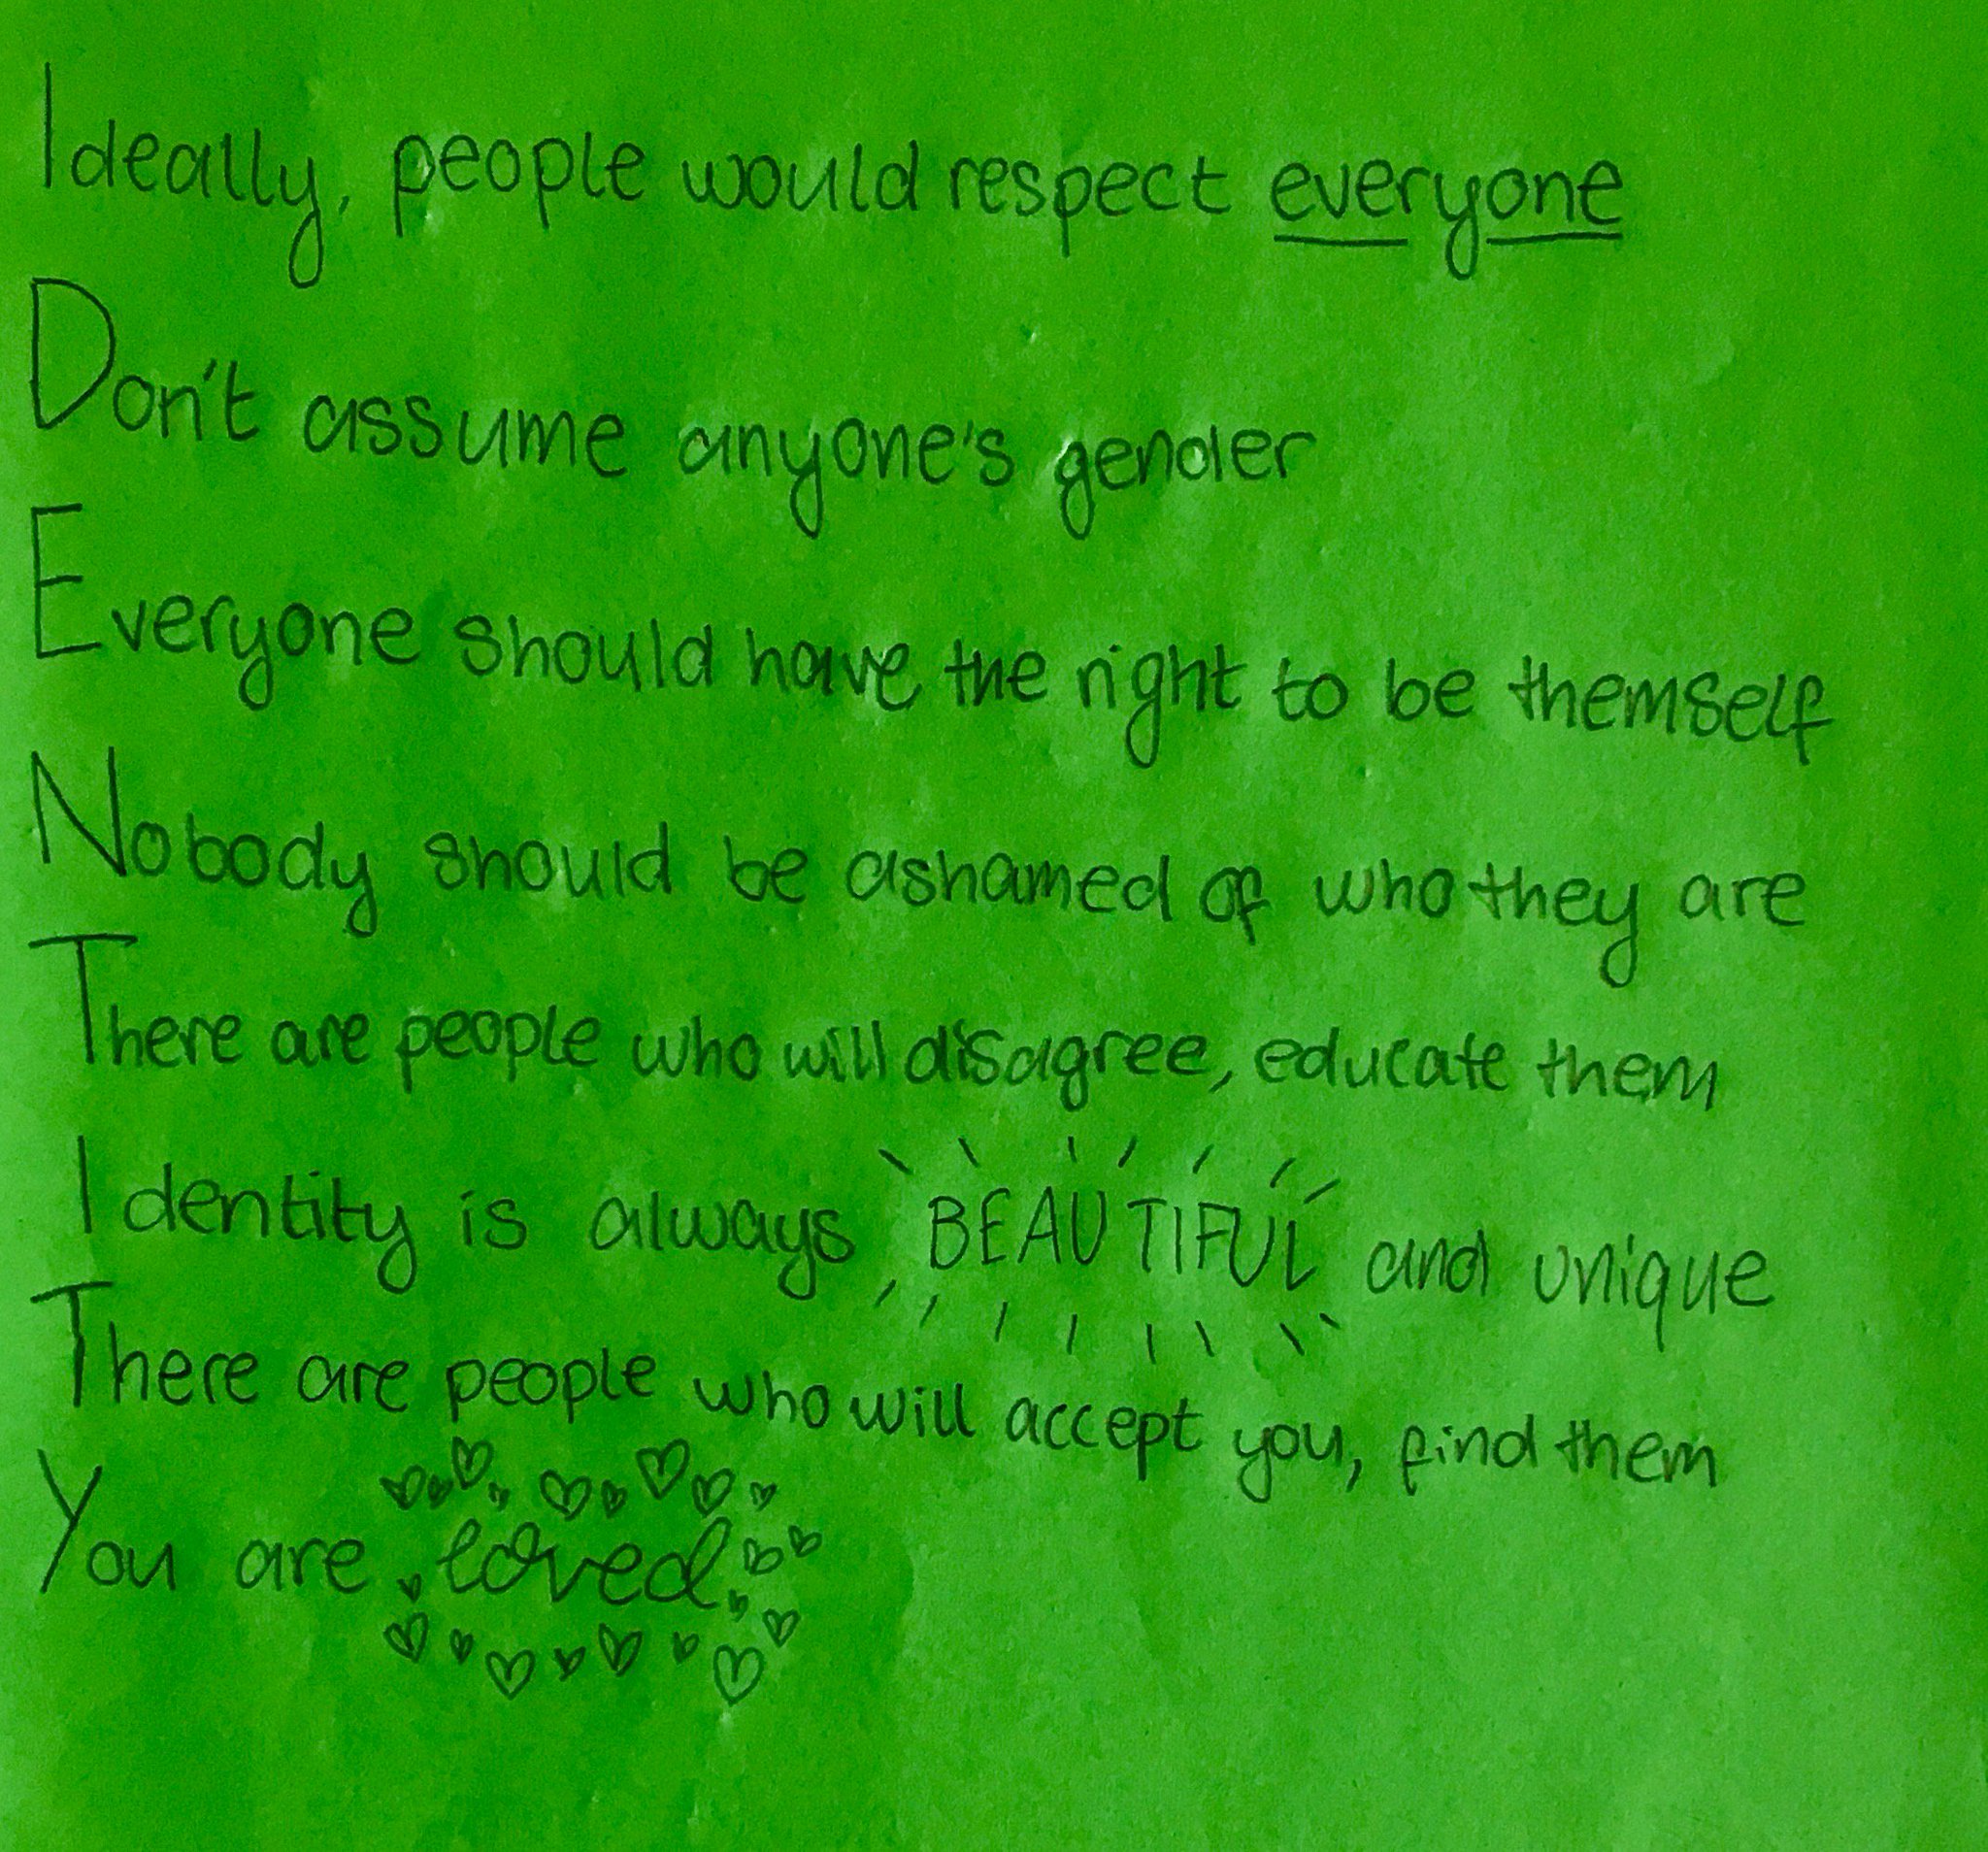 Ideally, people would respect everyone
Don't assume anyone's gender
Everyone should have the right to be themself
Nobody should be ashamed of who they are
There are people who will disagree, educate them
Identity is always BEAUTIFUL and unique
There are people who will accept you, find them
You are loved